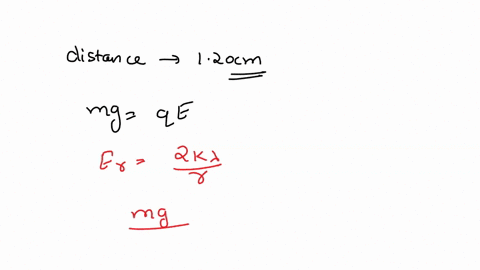 distance → 1.20cm
mg = qE
Er = 2Kλ/r
mg